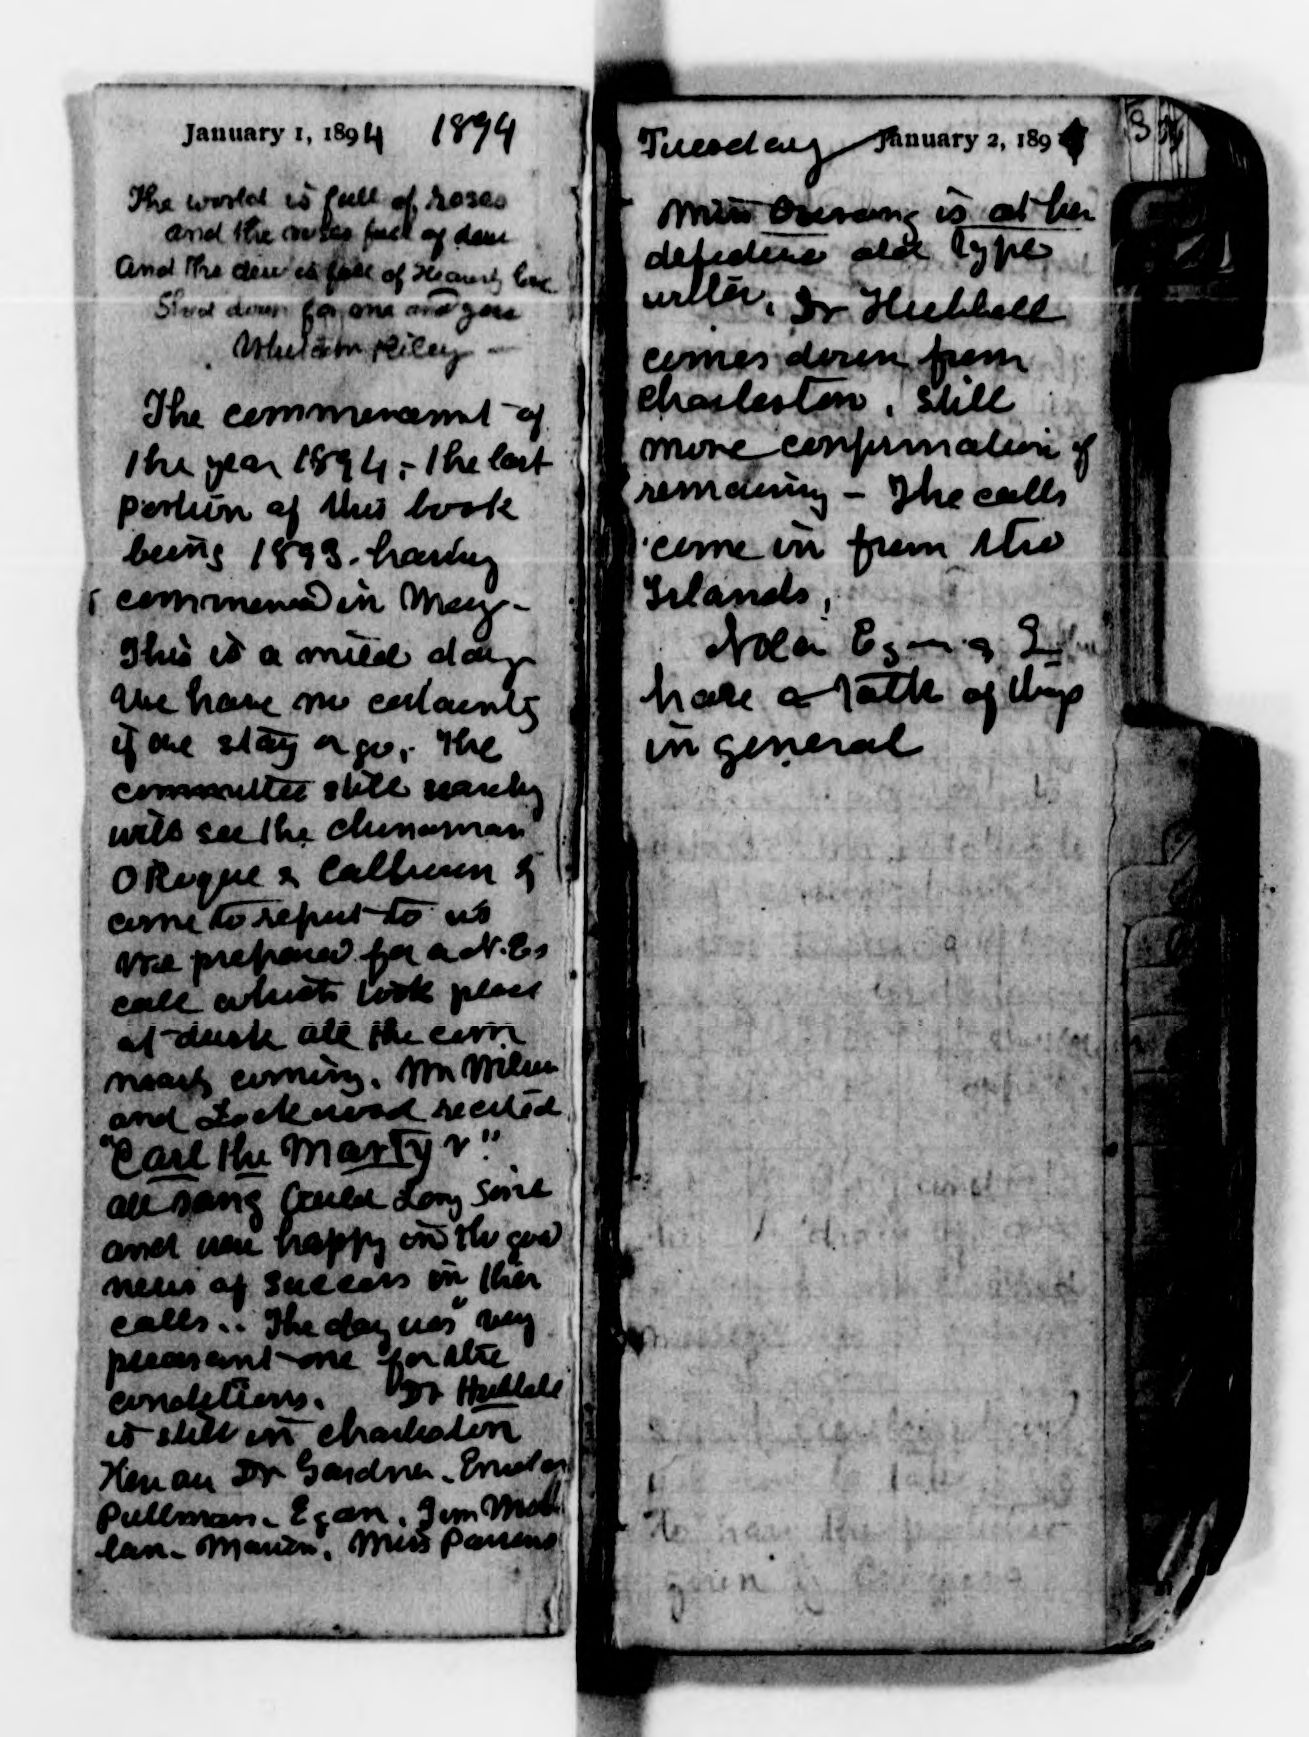 January 1, 1894 1894
The world is full of roses
and the roses full of dew
And the dew is full of Heavenly love
Shed down for me and you
Whitcom Riley -
The commencemnt of
the year 1894 - the last
portion of this book
being 1893. having
commenced in May -
This is a mild day
We have no certainty
if we stay or go. The
committee still search
will see the chinaman
O Rogue & Calhoun &
come to report to us
We prepared for a N. Es
call which took place
at dusk all the com
nearly coming. Mr Wilson
and Lockwood recited
"Carl the Martyr."
all sang Could Long Since
and were happy in the good
news of success in their
calls.. The day was very
pleasant one for the
conditions. Dr Hubbell
is still in Charleston
Here are Dr Gardner.
Pullman. Egan. Jim
lan. Marion. Miss Parsons
Tuesday January 2, 1894 3
Miss is at her
defective old type
writer. Dr Hubbell
comes down from
Charleston. Still
more confirmation of
remaining - The calls
come in from the
Islands,
Nola Egan &
have a talk of things
in general